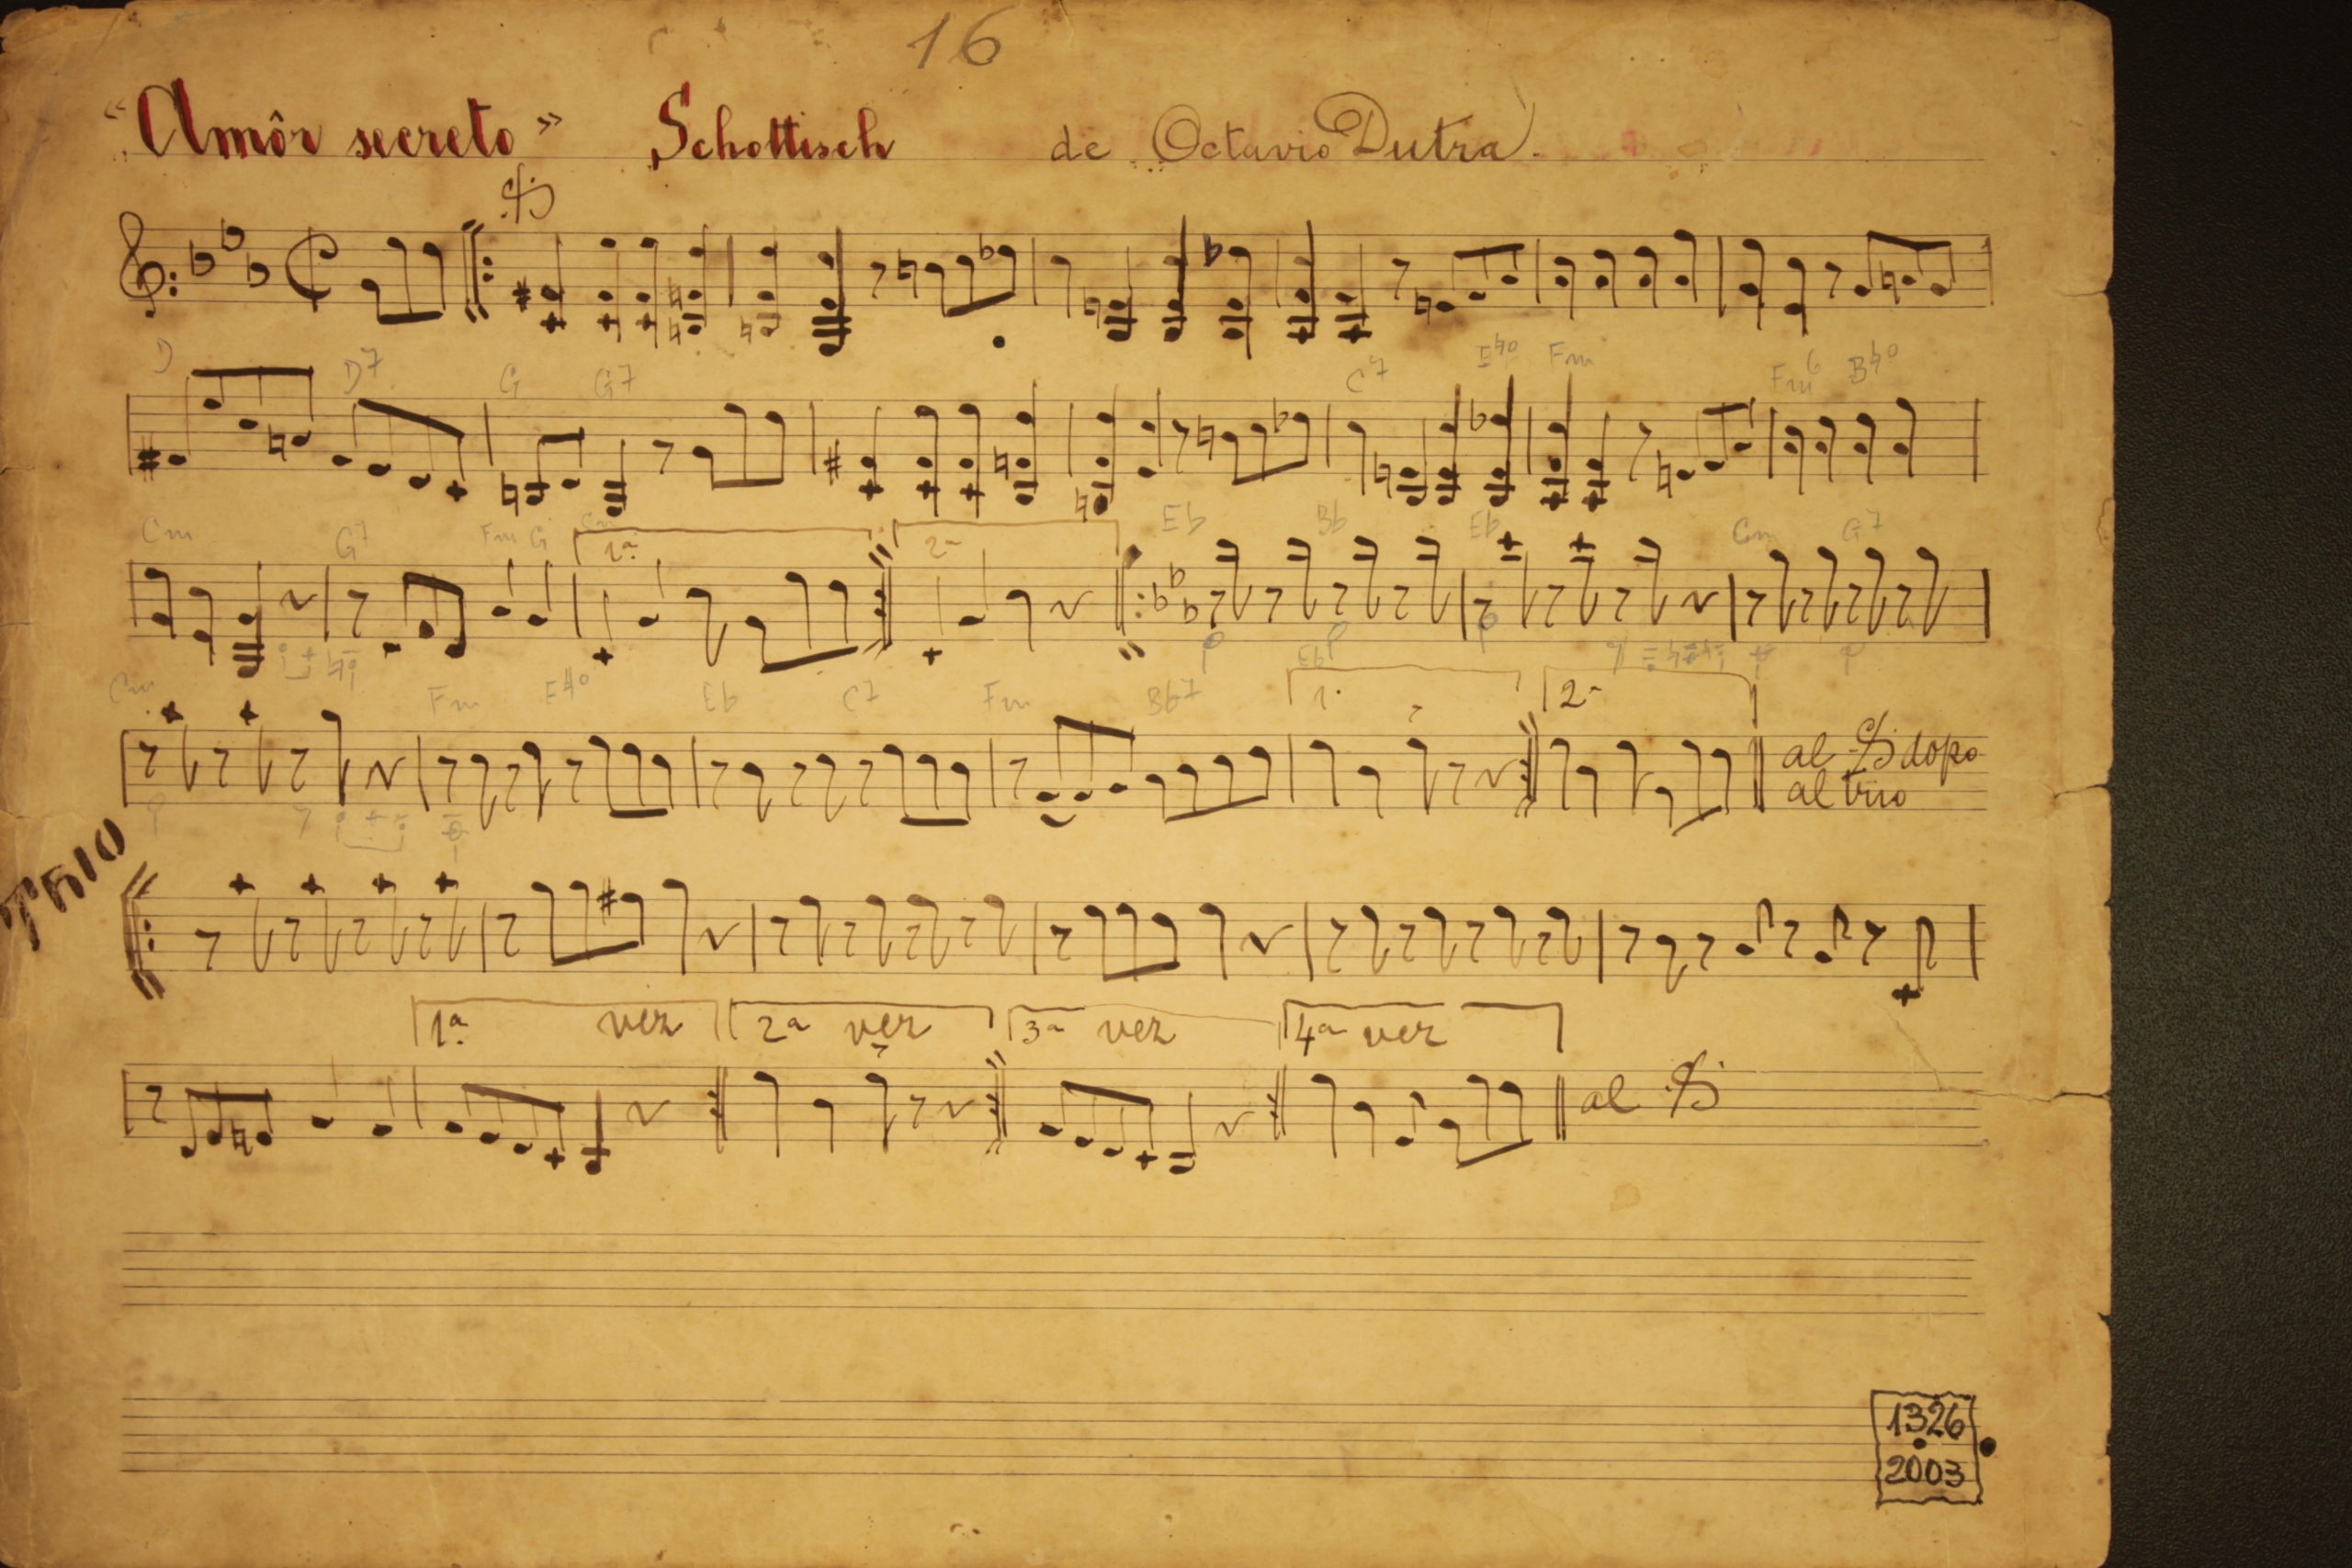 16
"Amôr secreto" Schottisch de Octavio Dutra.
D D7 G G7 C7 E♮o Fm Fm6 B♮o
Cm G7 Fm G Cm Eb Bb Eb Cm G7
1ª 2ª
Cm Fm E♮o Eb C7 Fm Bb7
Eb
1. 2ª
al 𝄋 dopo
al trio
TRIO
1ª vez 2ª vez 3ª vez 4ª vez
al 𝄋
1326
2003